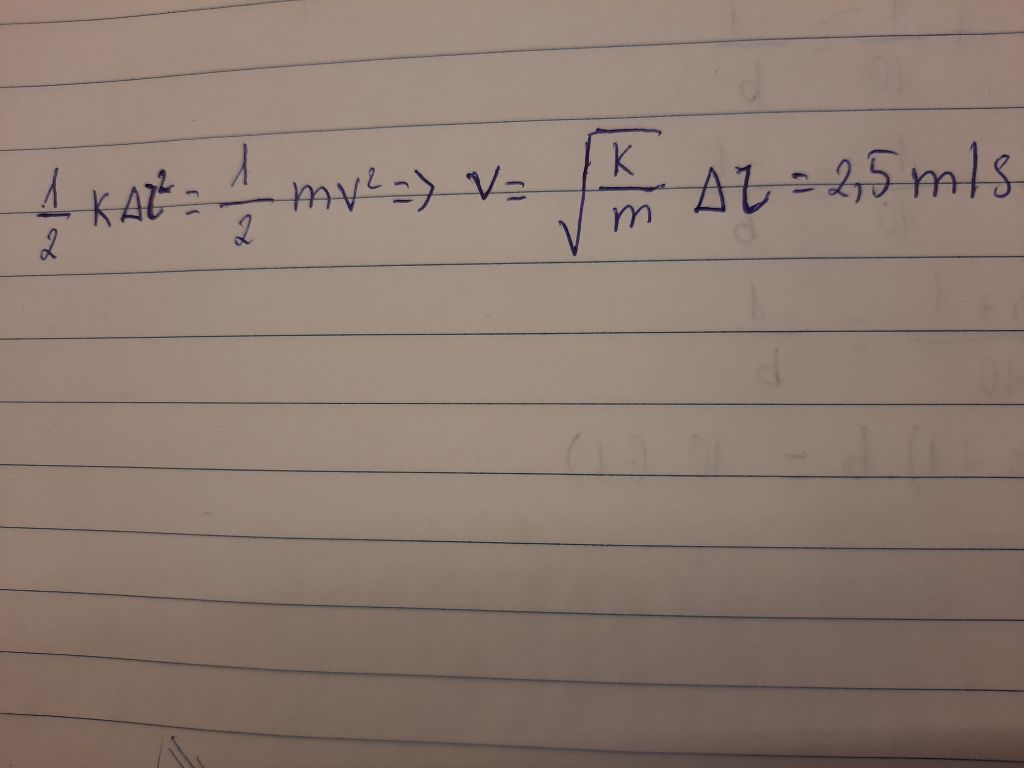 1/2 KΔl² = 1/2 mv² => v = √(K/m) Δl = 2,5 m/s